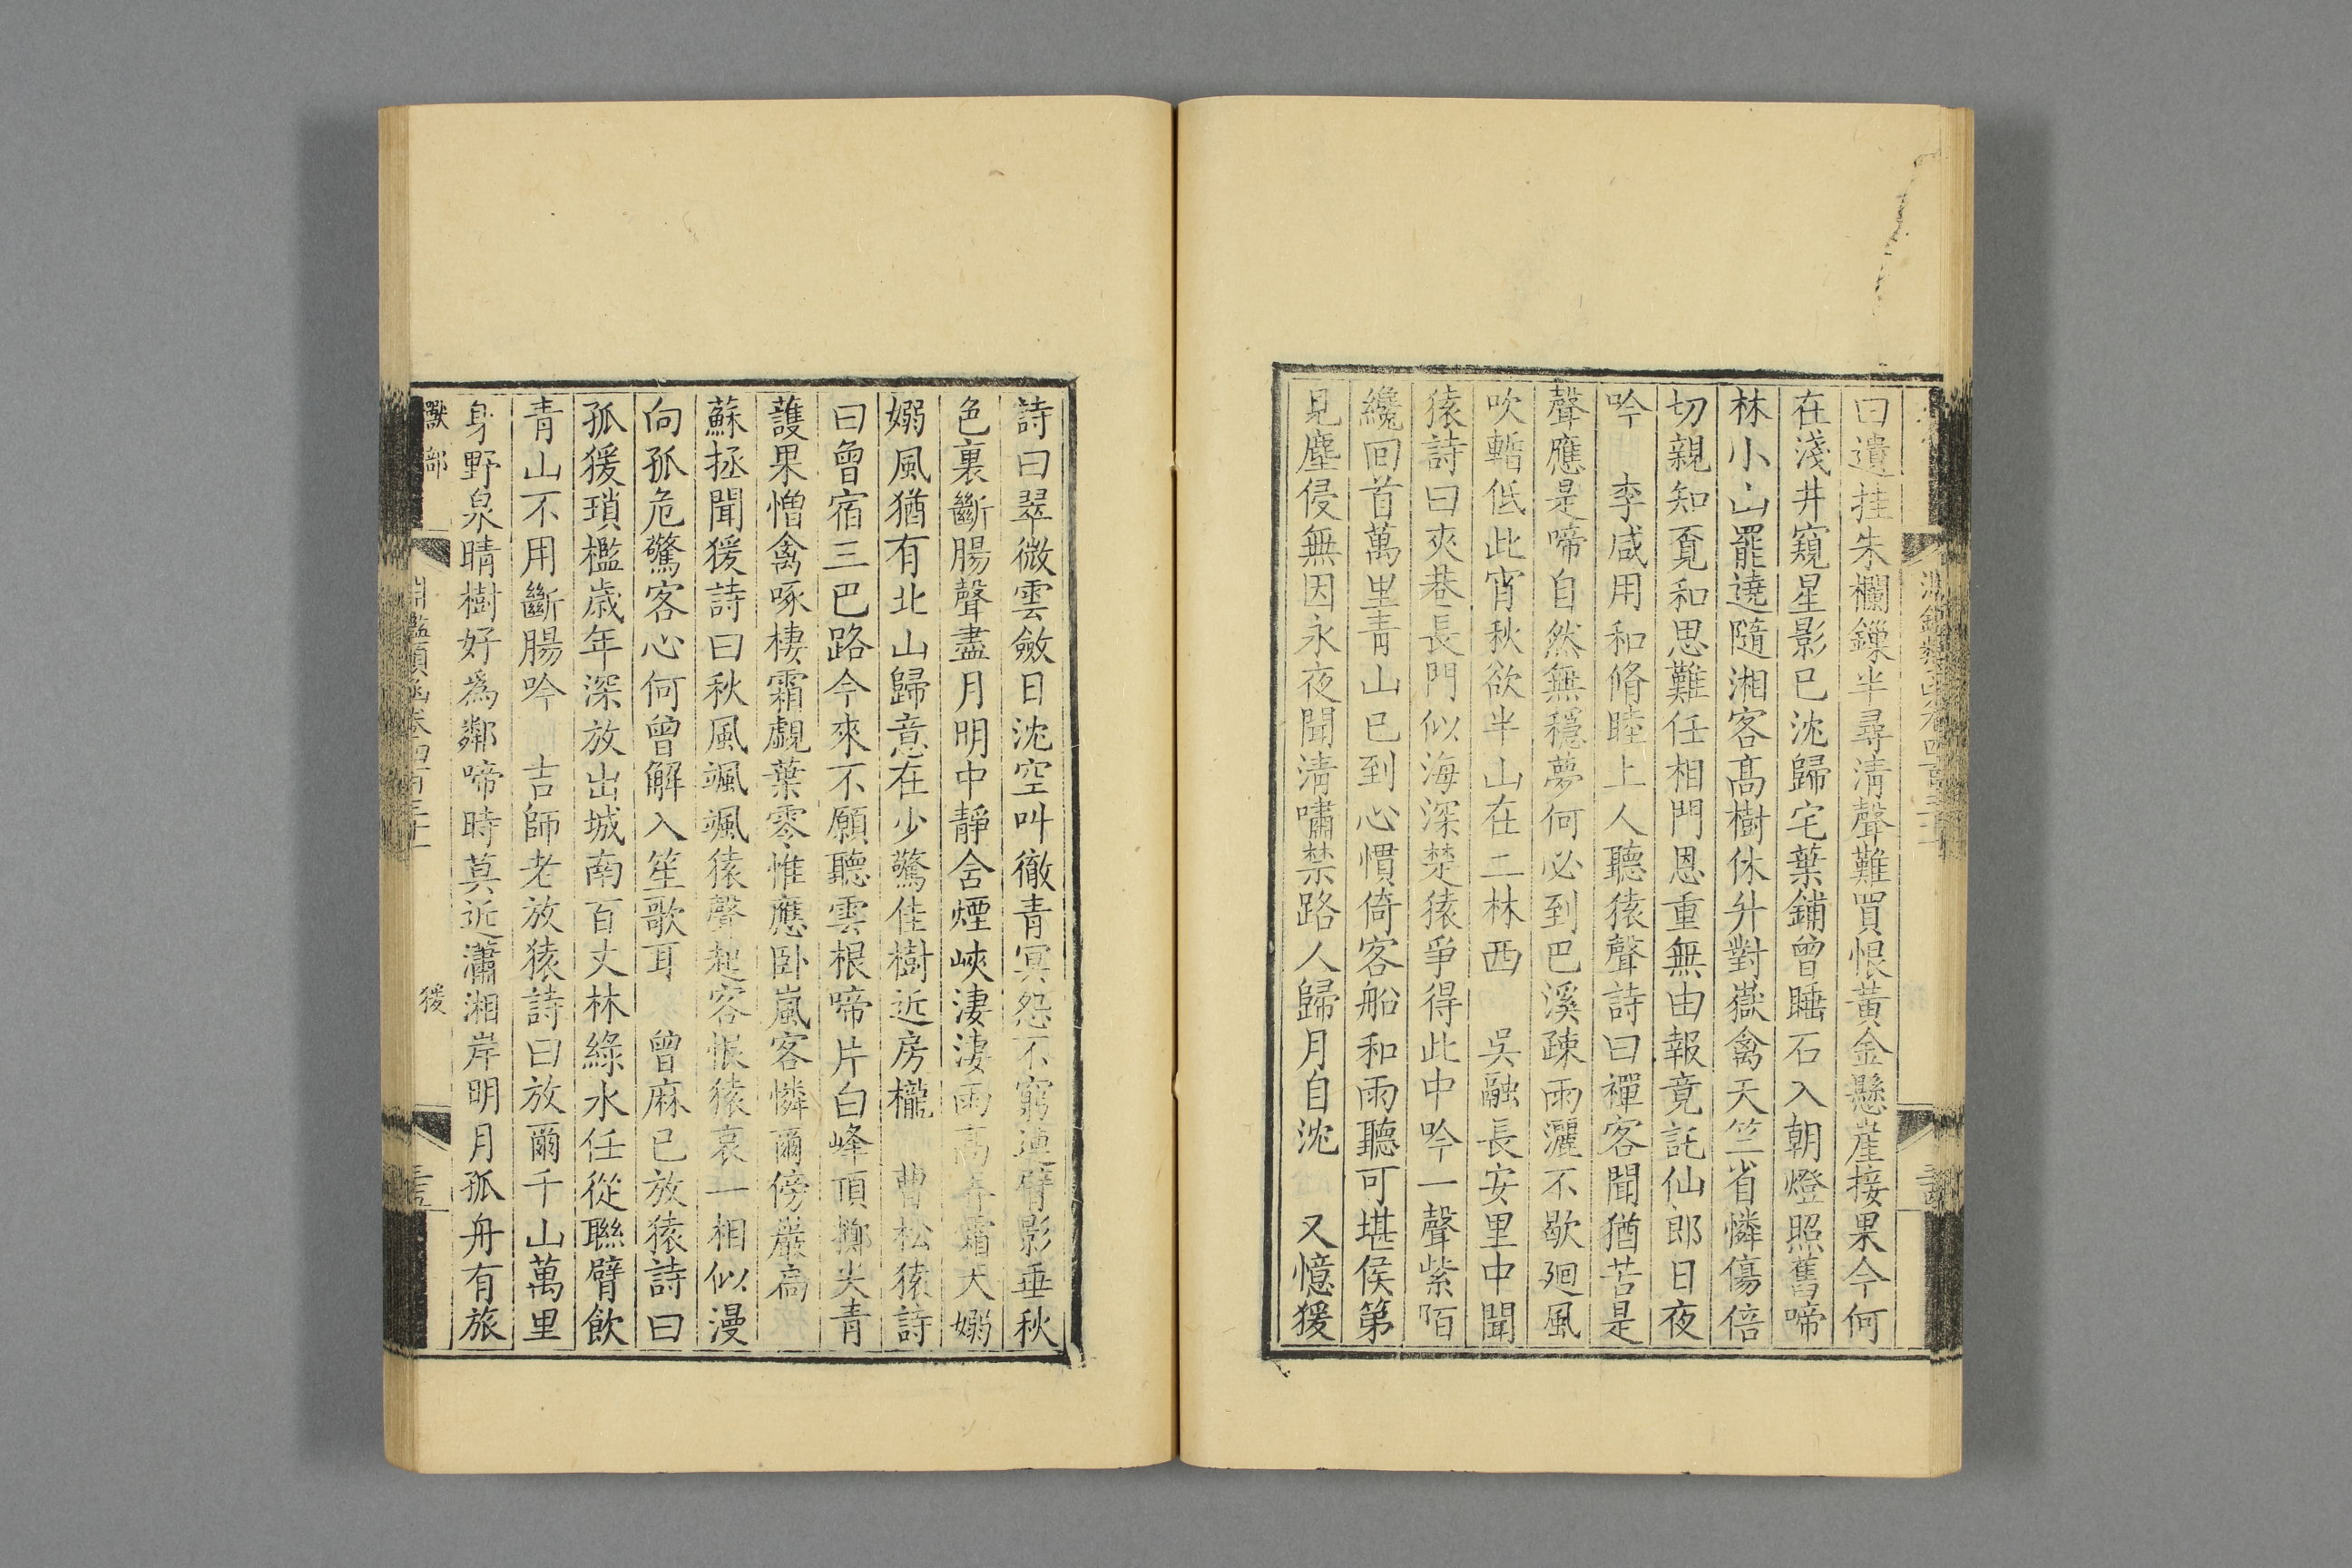 曰遺挂朱欄鏁半尋清聲難買恨黃金懸崖接果今何
在淺井窺星影已沈歸宅葉鋪曾睡石入朝燈照舊啼
林小山罷遶隨湘客髙樹休升對嶽禽天竺省憐傷倍
切親知覔和思難任相門恩重無由報竟託仙郎日夜
吟　李咸用和脩睦上人聽猿聲詩曰禪客聞猶苦是
聲應是啼自然無穩夢何必到巴溪疎雨灑不歇廻風
吹暫低此宵秋欲半山在二林西　吳融長安里中聞
猿詩曰夾巷長門似海深楚猿爭得此中吟一聲紫陌
纔回首萬里靑山已到心慣倚客船和雨聽可堪侯第
見塵侵無因永夜聞淸嘯禁路人歸月自沈　又憶猨
詩曰翠微雲斂日沈空叫徹青冥怨不窮連臂影垂秋
色裏斷腸聲盡月明中靜含煙峽淒淒雨高弄霜天嫋
嫋風猶有北山歸意在少驚佳樹近房櫳　曹松猿詩
曰曾宿三巴路今來不願聽雲根啼片白峰頂擲尖青
護果憎禽啄棲霜覷葉零惟應卧嵐客憐爾傍巖扃
蘇拯聞猨詩曰秋風颯颯猿聲起客恨猿哀一相似漫
向孤危驚客心何曾解入笙歌耳　曾麻已放猿詩曰
孤猨瑣檻歲年深放出城南百丈林綠水任從聯臂飲
青山不用斷腸吟　吉師老放猿詩曰放爾千山萬里
身野泉晴樹好爲鄰啼時莫近瀟湘岸明月孤舟有旅
獸部
淵鑑類函卷四百三十一
猨